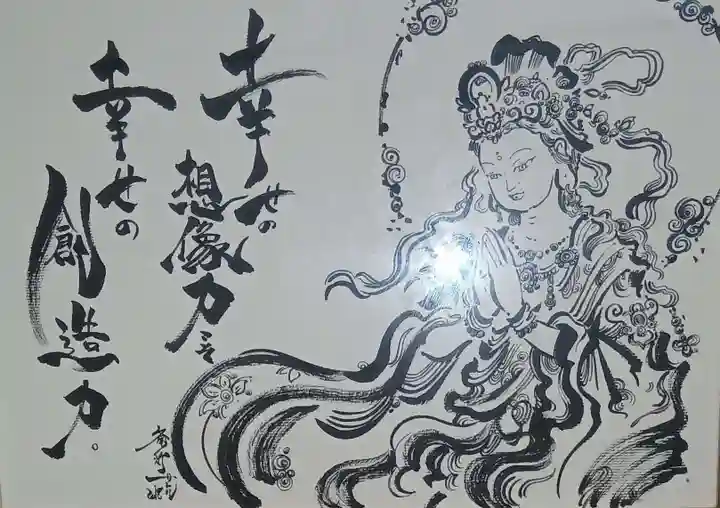 幸せの想像力こそ
幸せの創造力。